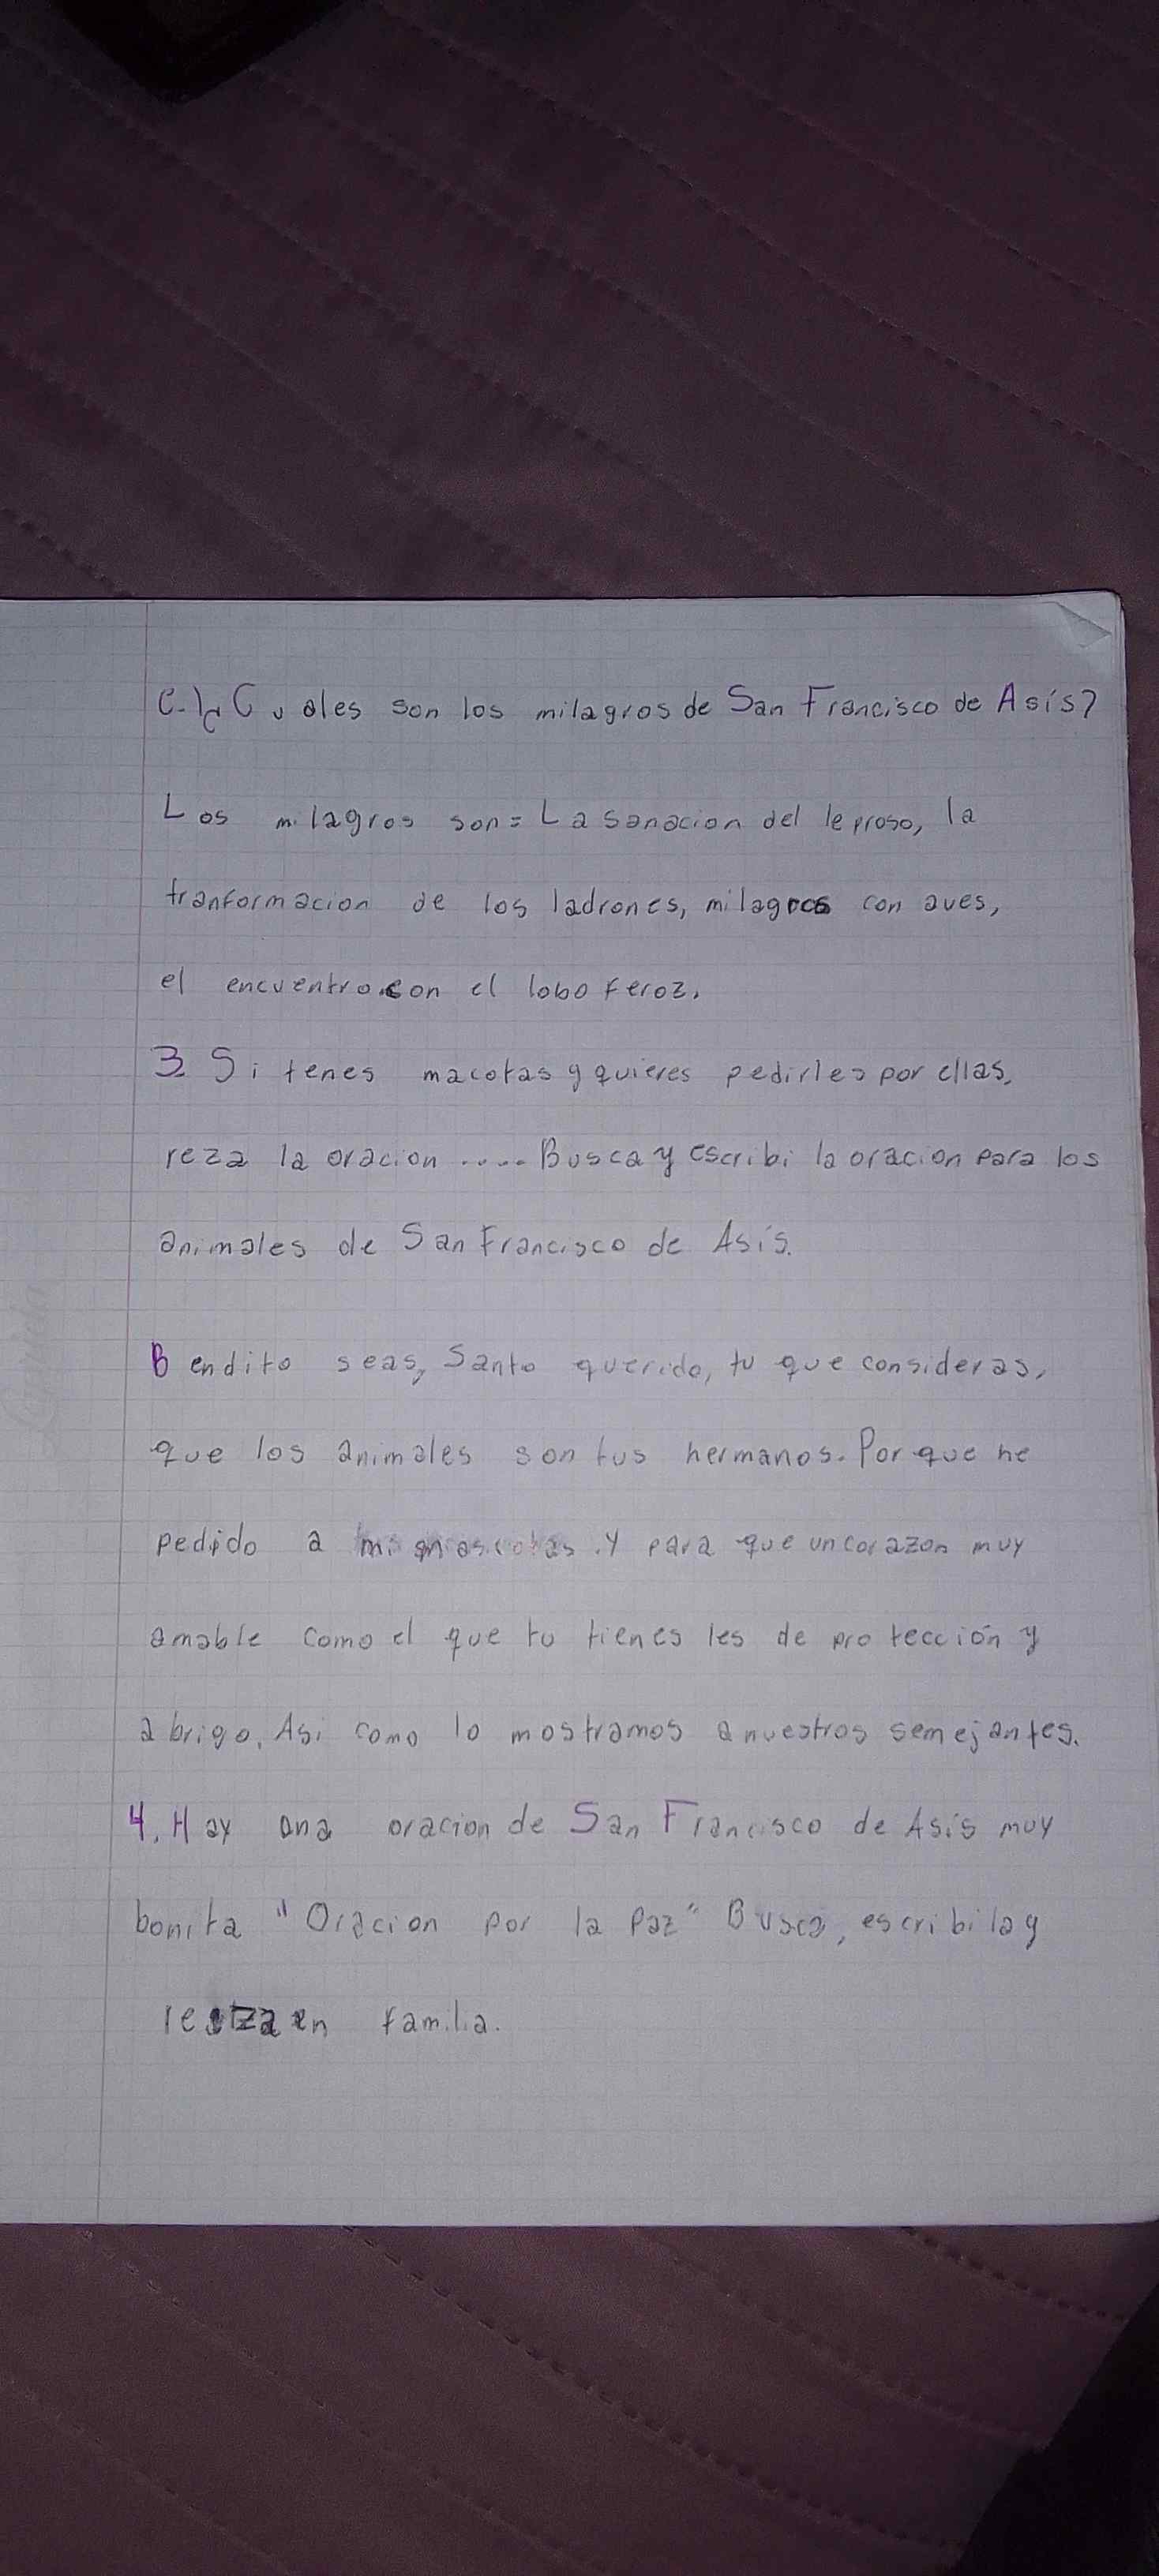 C-¿Cuales son los milagros de San Francisco de Asís?
Los milagros son= La sanacion del leproso, la
tranformacion de los ladrones, milagros con aves,
el encuentro con el lobo feroz.
3. Si tenes macotas y quieres pedirles por ellas.
reza la oracion .... Busca y escribi la oracion para los
animales de San Francisco de Asís.
Bendito seas, Santo querido, tu que consideras,
que los animales son tus hermanos. Porque he
pedido a mis mascotas. Y para que un corazon muy
amable como el que tu tienes les de protección y
abrigo. Asi como lo mostramos a nuestros semejantes.
4. Hay una oracion de San Francisco de Asis muy
bonita "Oracion por la Paz" Busca, escribila y
reza en familia.